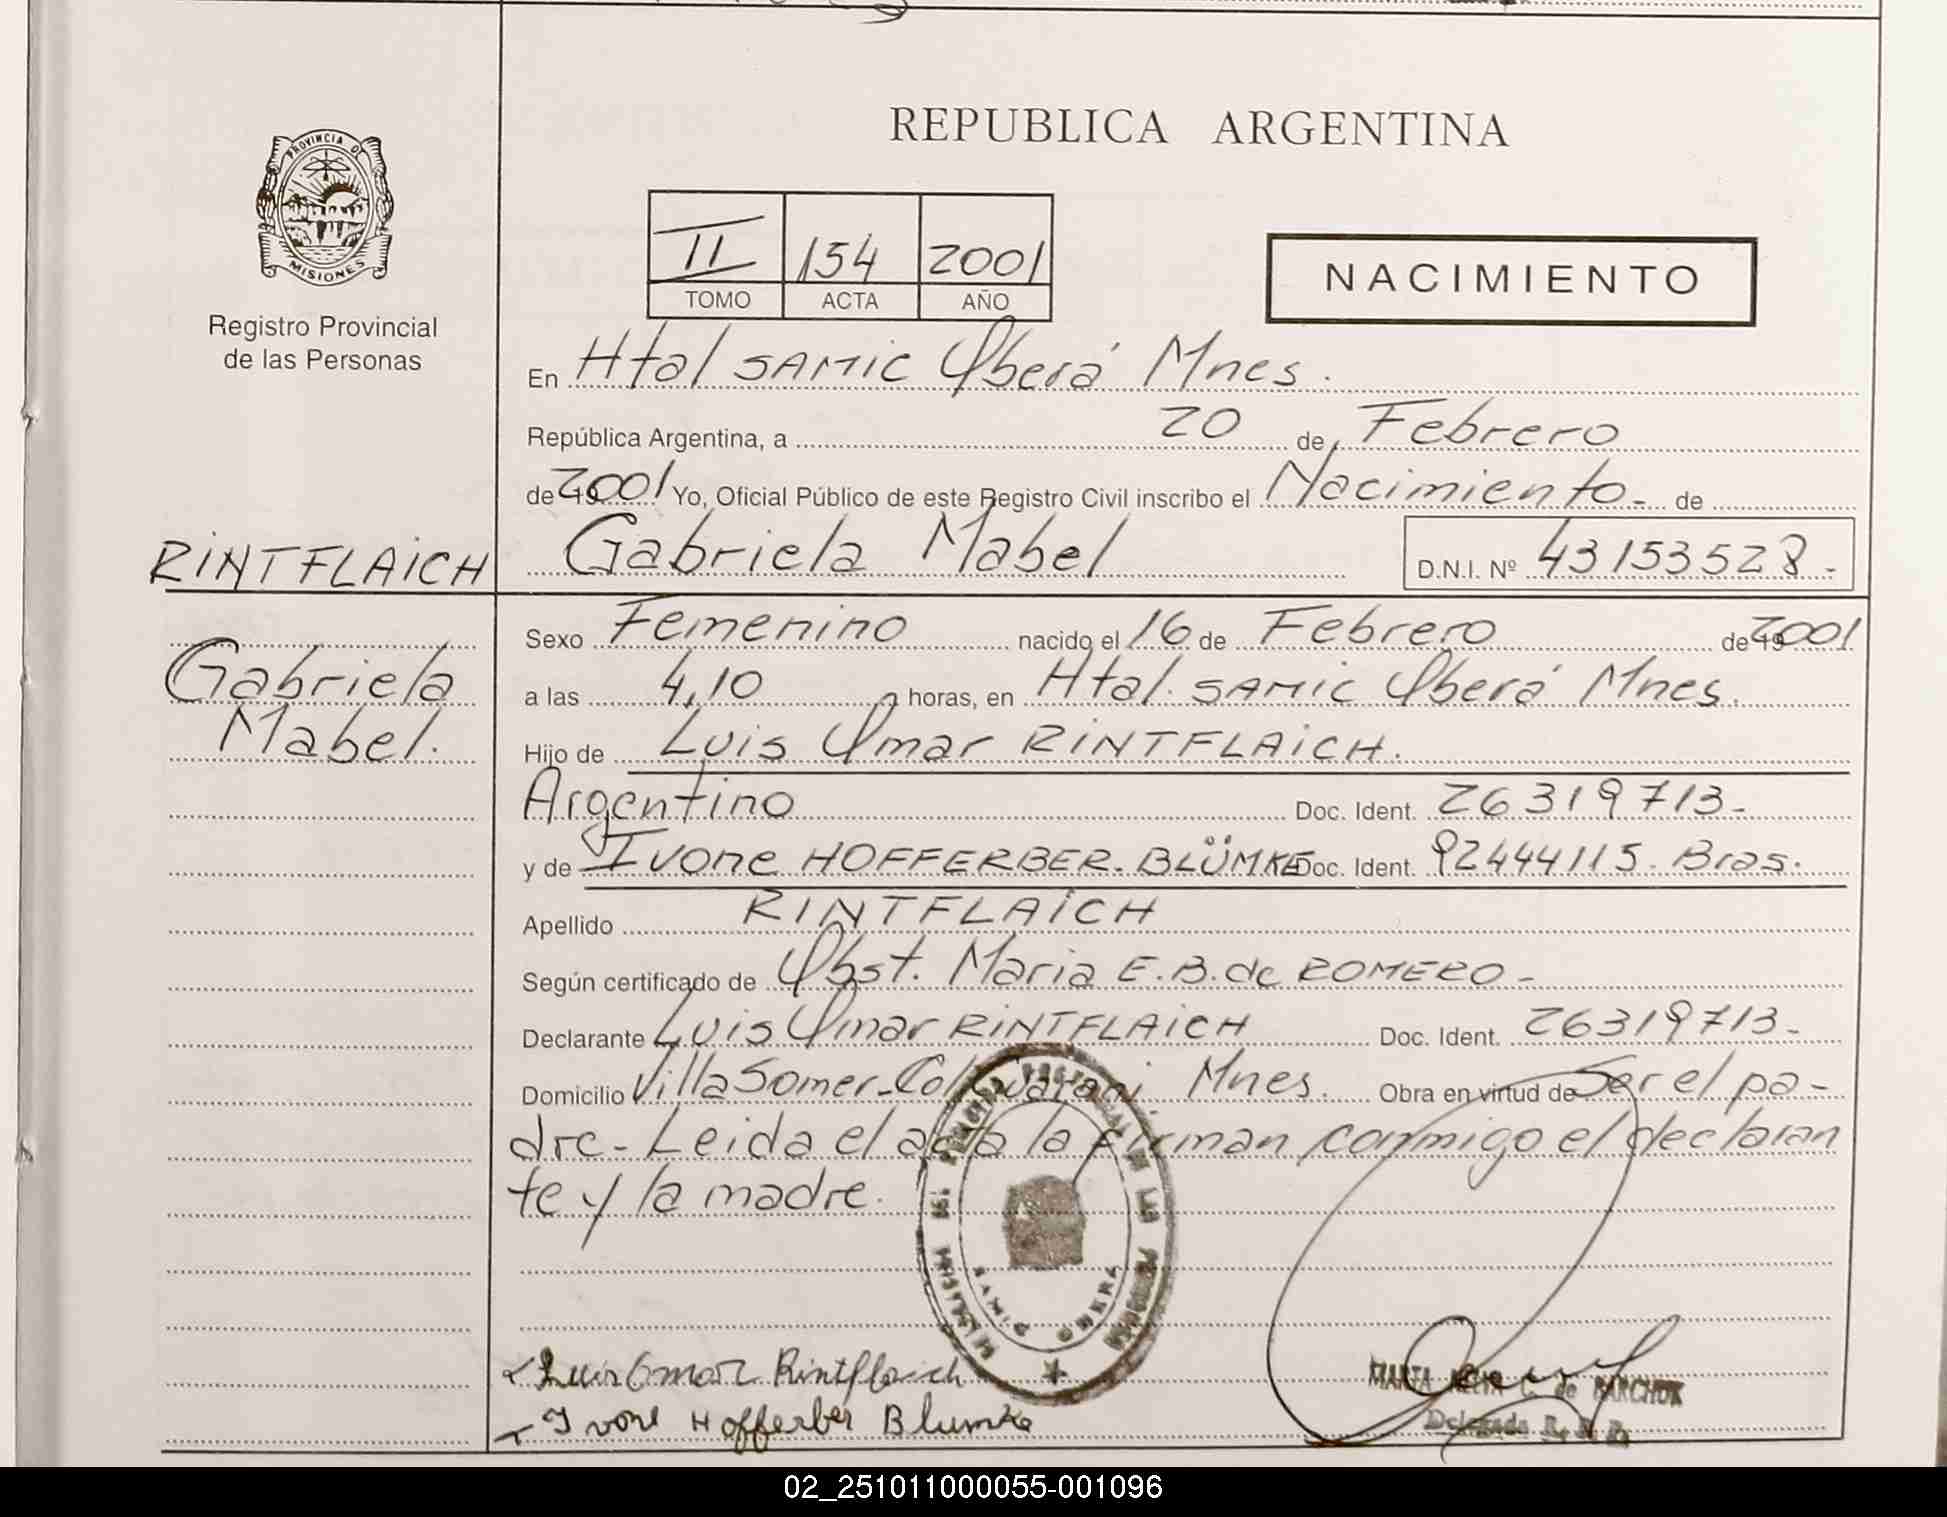 REPUBLICA ARGENTINA
PROVINCIA DE
MISIONES
Registro Provincial
de las Personas
II 154 2001
TOMO ACTA AÑO
NACIMIENTO
En Htal SAMIC Oberá Mnes.
República Argentina, a 20 de Febrero
de 2001 Yo, Oficial Público de este Registro Civil inscribo el Nacimiento- de
RINTFLAICH Gabriela Mabel D.N.I. Nº 43153528-
Sexo Femenino nacido el 16 de Febrero de 2001
Gabriela
a las 4,10 horas, en Htal. SAMIC Oberá Mnes.
Mabel.
Hijo de Luis Omar RINTFLAICH.
Argentino Doc. Ident. 26319713-
y de Ivone HOFFERBER-BLÜMKE Doc. Ident. 92444115. Bras.
Apellido RINTFLAICH
Según certificado de Obst. Maria E.B. de ROMERO-
Declarante Luis Omar RINTFLAICH Doc. Ident. 26319713-
Domicilio Villa Somer-Col Guarani. Mnes. Obra en virtud de Ser el pa-
dre- Leida el acta la firman conmigo el declaran
te y la madre.
Luis Omar Rintflaich
Ivone Hofferber Blumke
SAMIC OBERA
de BARCHUK
Delegada R. P. P.
02_251011000055-001096